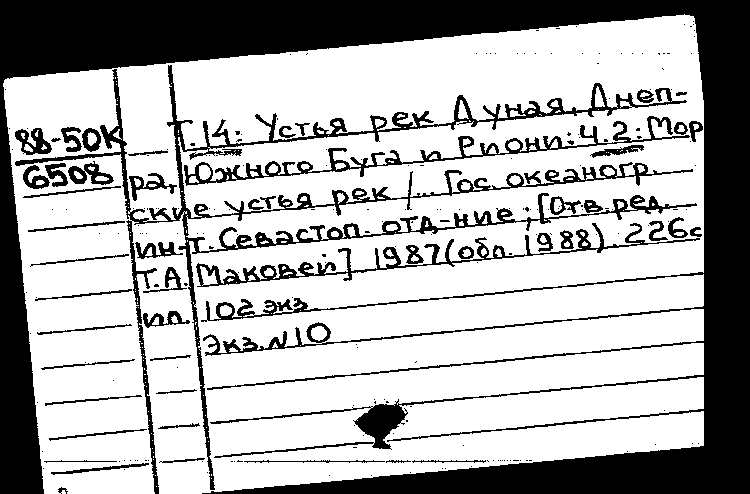 88-50К
6508
Т.14: Устья рек Дуная, Днеп-
ра, Южного Буга и Риони: Ч.2: Мор
ские устья рек /... Гос. океаногр.
ин-т. Севастоп. отд-ние; [Отв.ред.
Т.А. Маковей] 1987(обл. 1988). 226с
ил. 102 экз.
Экз.№10